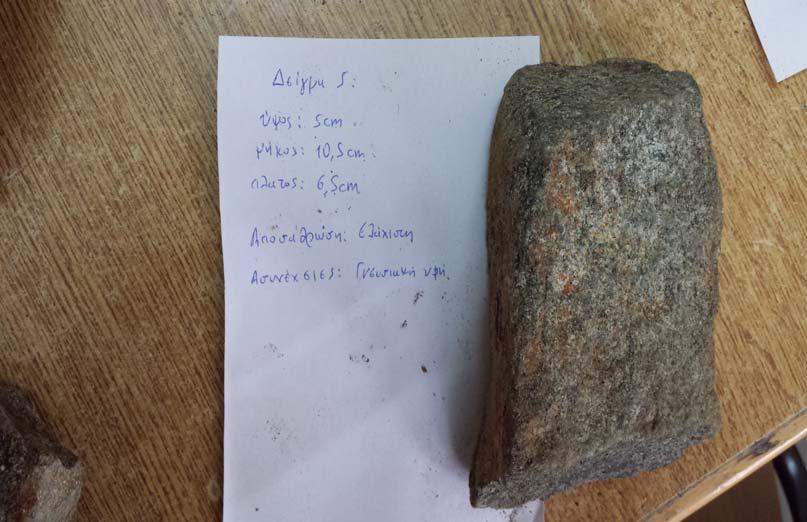 Δείγμα 5:
ύψος: 5cm
μήκος: 10,5cm
πλατος: 6,5cm
Αποσάθρωση: Ελάχιστη
Ασυνέχειες: Γνευσιακή υφή.